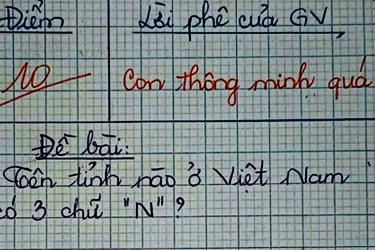 Điểm Lời phê của GV
10 Con thông minh quá
Đề bài:
Tên tỉnh nào ở Việt Nam
có 3 chữ "N"?